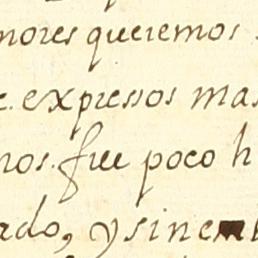 mores queremos
expressos mas
nos. fue poco h
ado, y sinemb